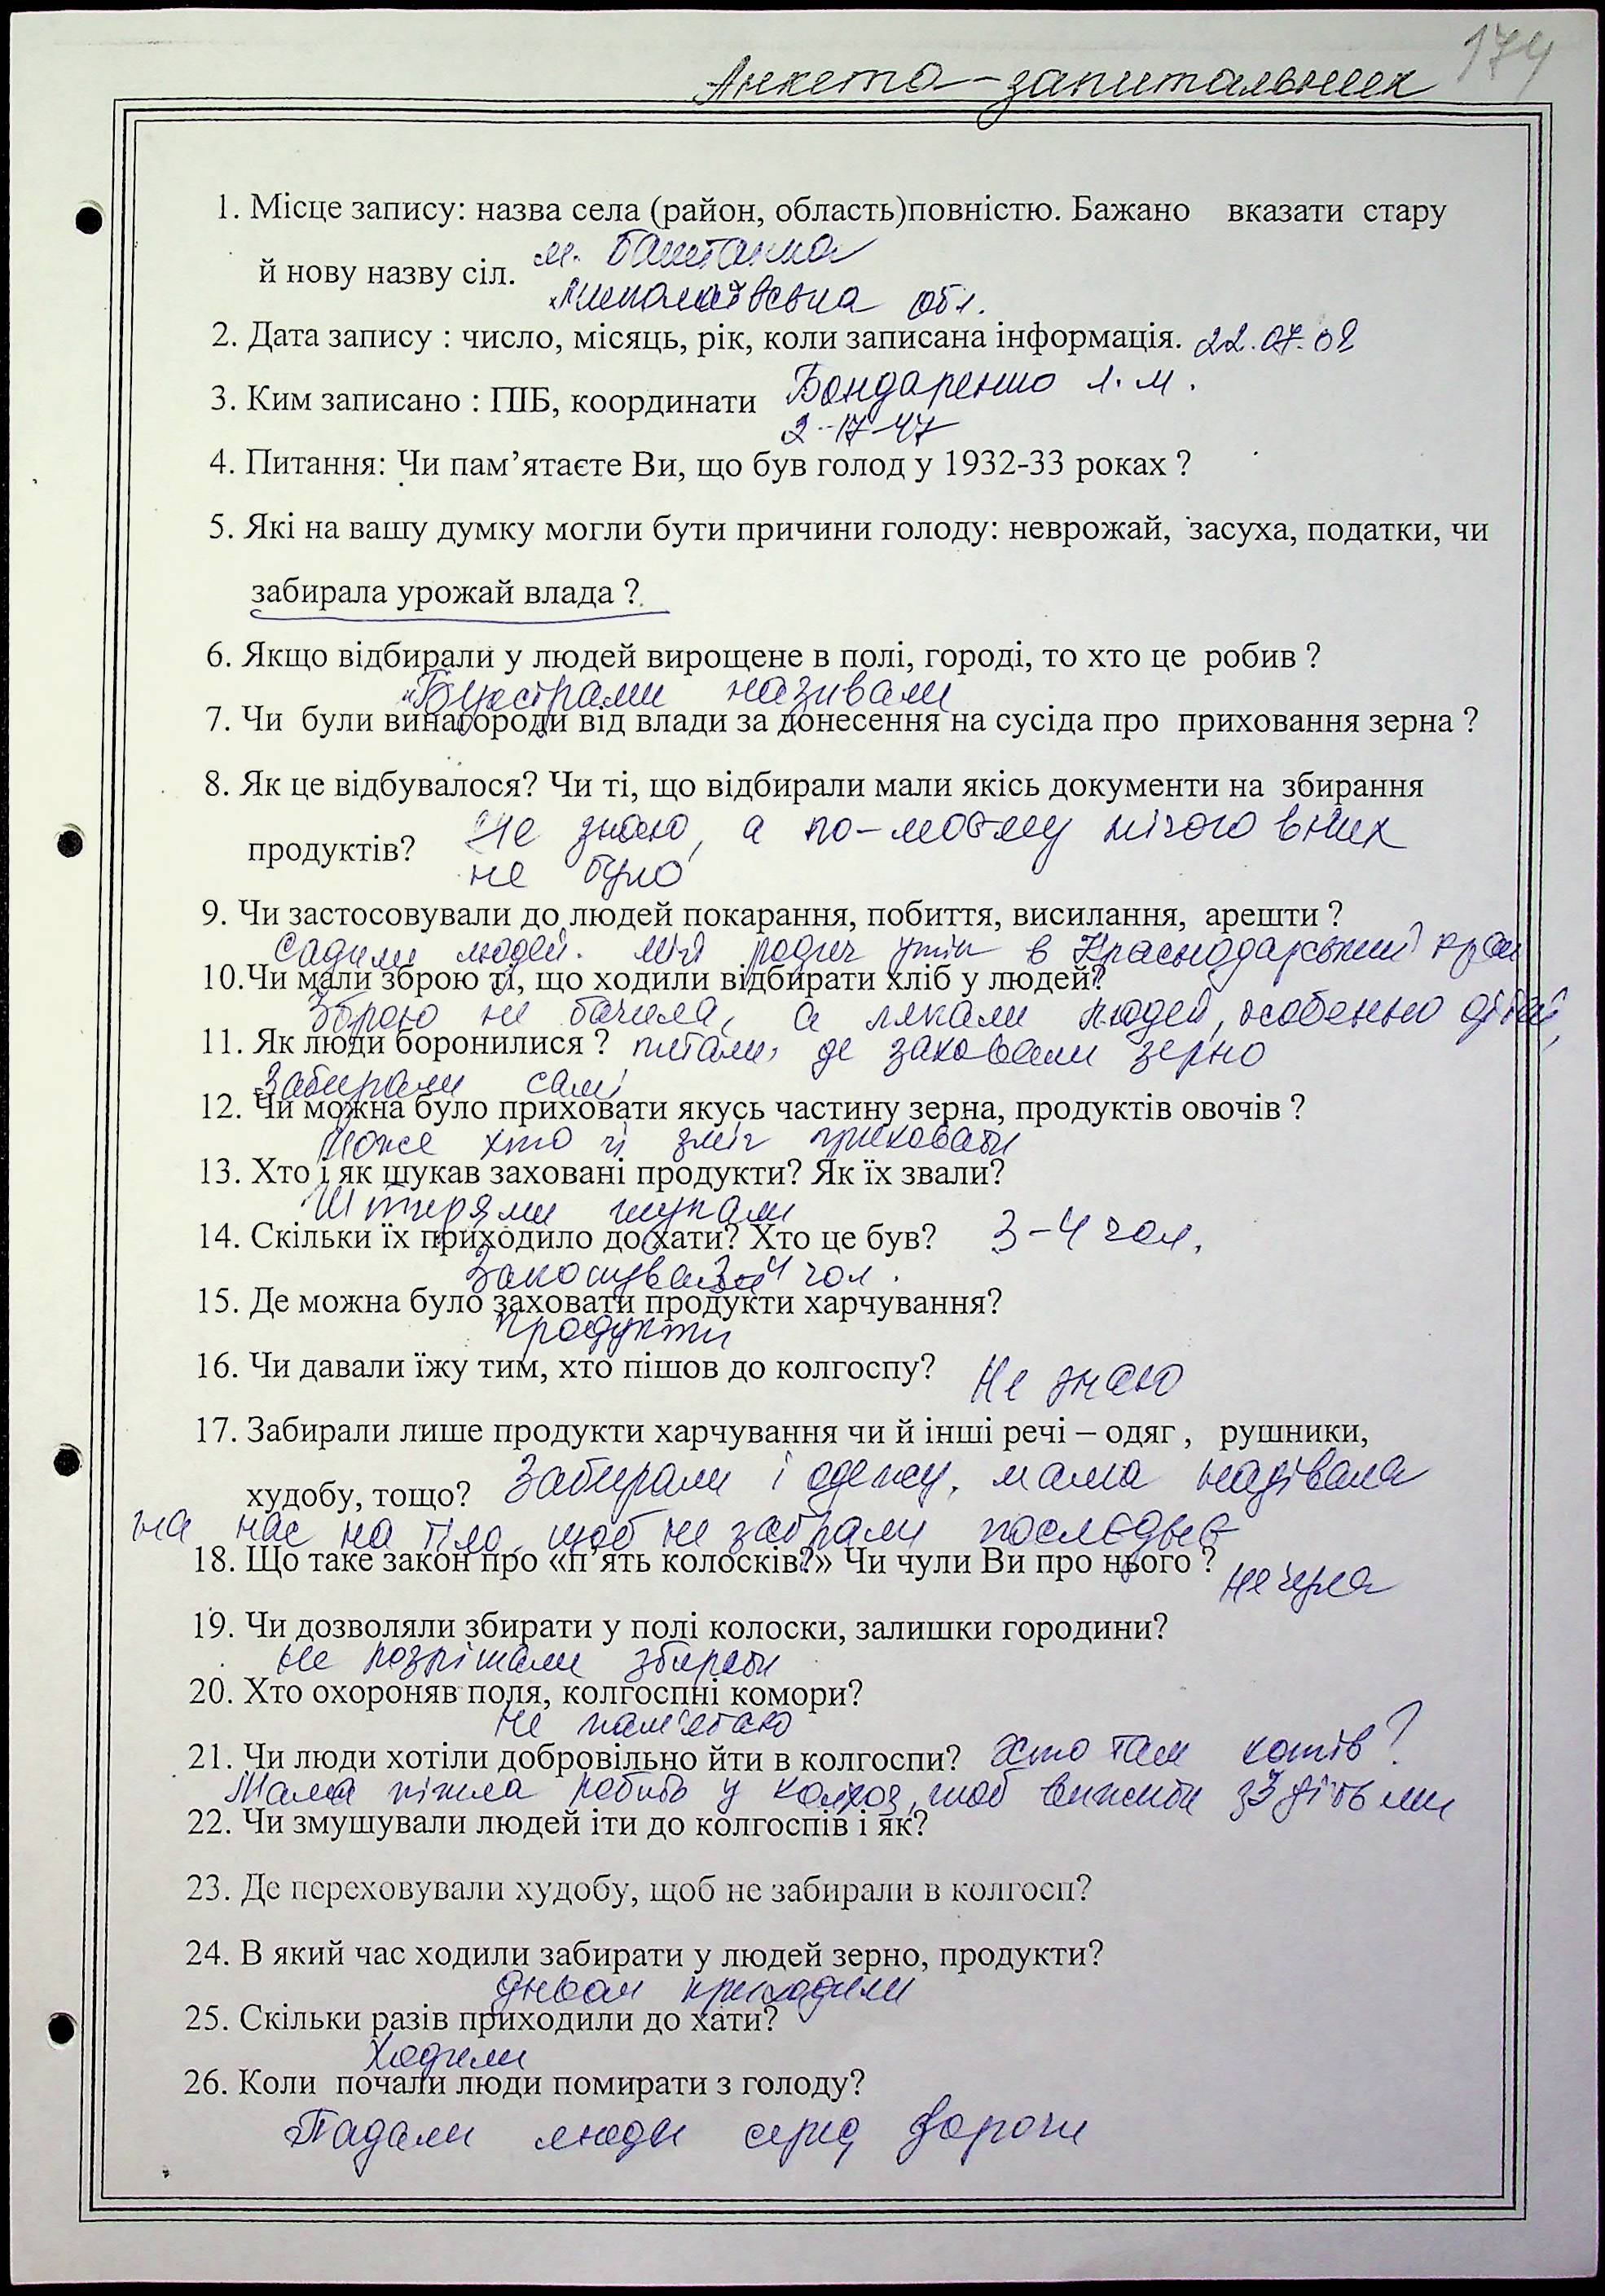 174
Анкета-запитальник
1. Місце запису: назва села (район, область)повністю. Бажано вказати стару
й нову назву сіл. м. Баштанка
Миколаївська обл.
2. Дата запису : число, місяць, рік, коли записана інформація. 22.07.08
3. Ким записано : ПІБ, координати Бондаренко Л. М.
2-17-47
4. Питання: Чи пам’ятаєте Ви, що був голод у 1932-33 роках ?
5. Які на вашу думку могли бути причини голоду: неврожай, засуха, податки, чи
забирала урожай влада ?
6. Якщо відбирали у людей вирощене в полі, городі, то хто це робив ?
називали
7. Чи були винагороди від влади за донесення на сусіда про приховання зерна ?
8. Як це відбувалося? Чи ті, що відбирали мали якісь документи на збирання
продуктів? Не знаю, а по-моєму нічого в них
не було
9. Чи застосовували до людей покарання, побиття, висилання, арешти ?
Садили людей. Мій родич утік в Краснодарський край
10.Чи мали зброю ті, що ходили відбирати хліб у людей?
Зброю не бачила, а лякали людей, особенно дітей,
11. Як люди боронилися ? питали, де заховали зерно
Забирали самі
12. Чи можна було приховати якусь частину зерна, продуктів овочів ?
Може хто й зміг приховати
13. Хто і як шукав заховані продукти? Як їх звали?
Штирями шукали
14. Скільки їх приходило до хати? Хто це був? 3-4 чол.
3-4 чол.
15. Де можна було заховати продукти харчування?
продукти
16. Чи давали їжу тим, хто пішов до колгоспу? Не знаю
17. Забирали лише продукти харчування чи й інші речі – одяг , рушники,
худобу, тощо? Забирали і одежу, мама надівала
на нас на тіло, щоб не забрали послєднєє
18. Що таке закон про «п’ять колосків?» Чи чули Ви про нього ? не чула
19. Чи дозволяли збирати у полі колоски, залишки городини?
не розрішали збирати
20. Хто охороняв поля, колгоспні комори?
Не пам'ятаю
21. Чи люди хотіли добровільно йти в колгоспи? Хто там хотів?
Мама пішла робить у колхоз, щоб вижити з 3 дітьми
22. Чи змушували людей іти до колгоспів і як?
23. Де переховували худобу, щоб не забирали в колгосп?
24. В який час ходили забирати у людей зерно, продукти?
Дньом приходили
25. Скільки разів приходили до хати?
Ходили
26. Коли почали люди помирати з голоду?
Падали люди серед дороги